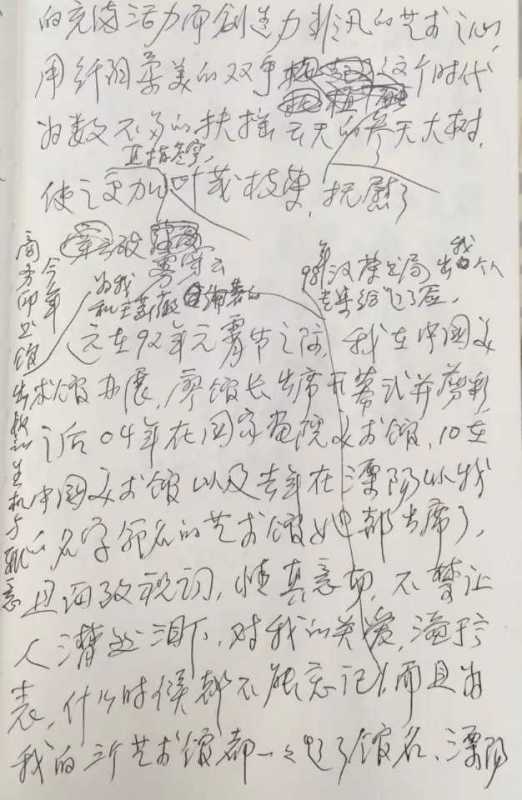 的充满活力而创造力非凡的艺术之心
用纤细柔美的双手 这个时代
为数不多的扶摇云天的参天大树,
直指苍穹,
使之更加叶茂枝
抚慰了
为我
98年汉荣书局出我个人
专集给起了
早在92年元宵节之际, 我在中国美
术馆办展, 廖馆长出席开幕式并剪彩,
之后04年在国家画院美术馆, 10年在
中国美术馆以及去年在溧阳以我
的名字命名的艺术馆她都出席了,
且每致祝词, 情真意切, 不禁让
人潸然泪下, 对我的关爱, 溢于言
表, 什么时候都不能忘记! 而且为
我的三所艺术馆都一一起了馆名、溧阳
今年
商务印书馆出版的生机与